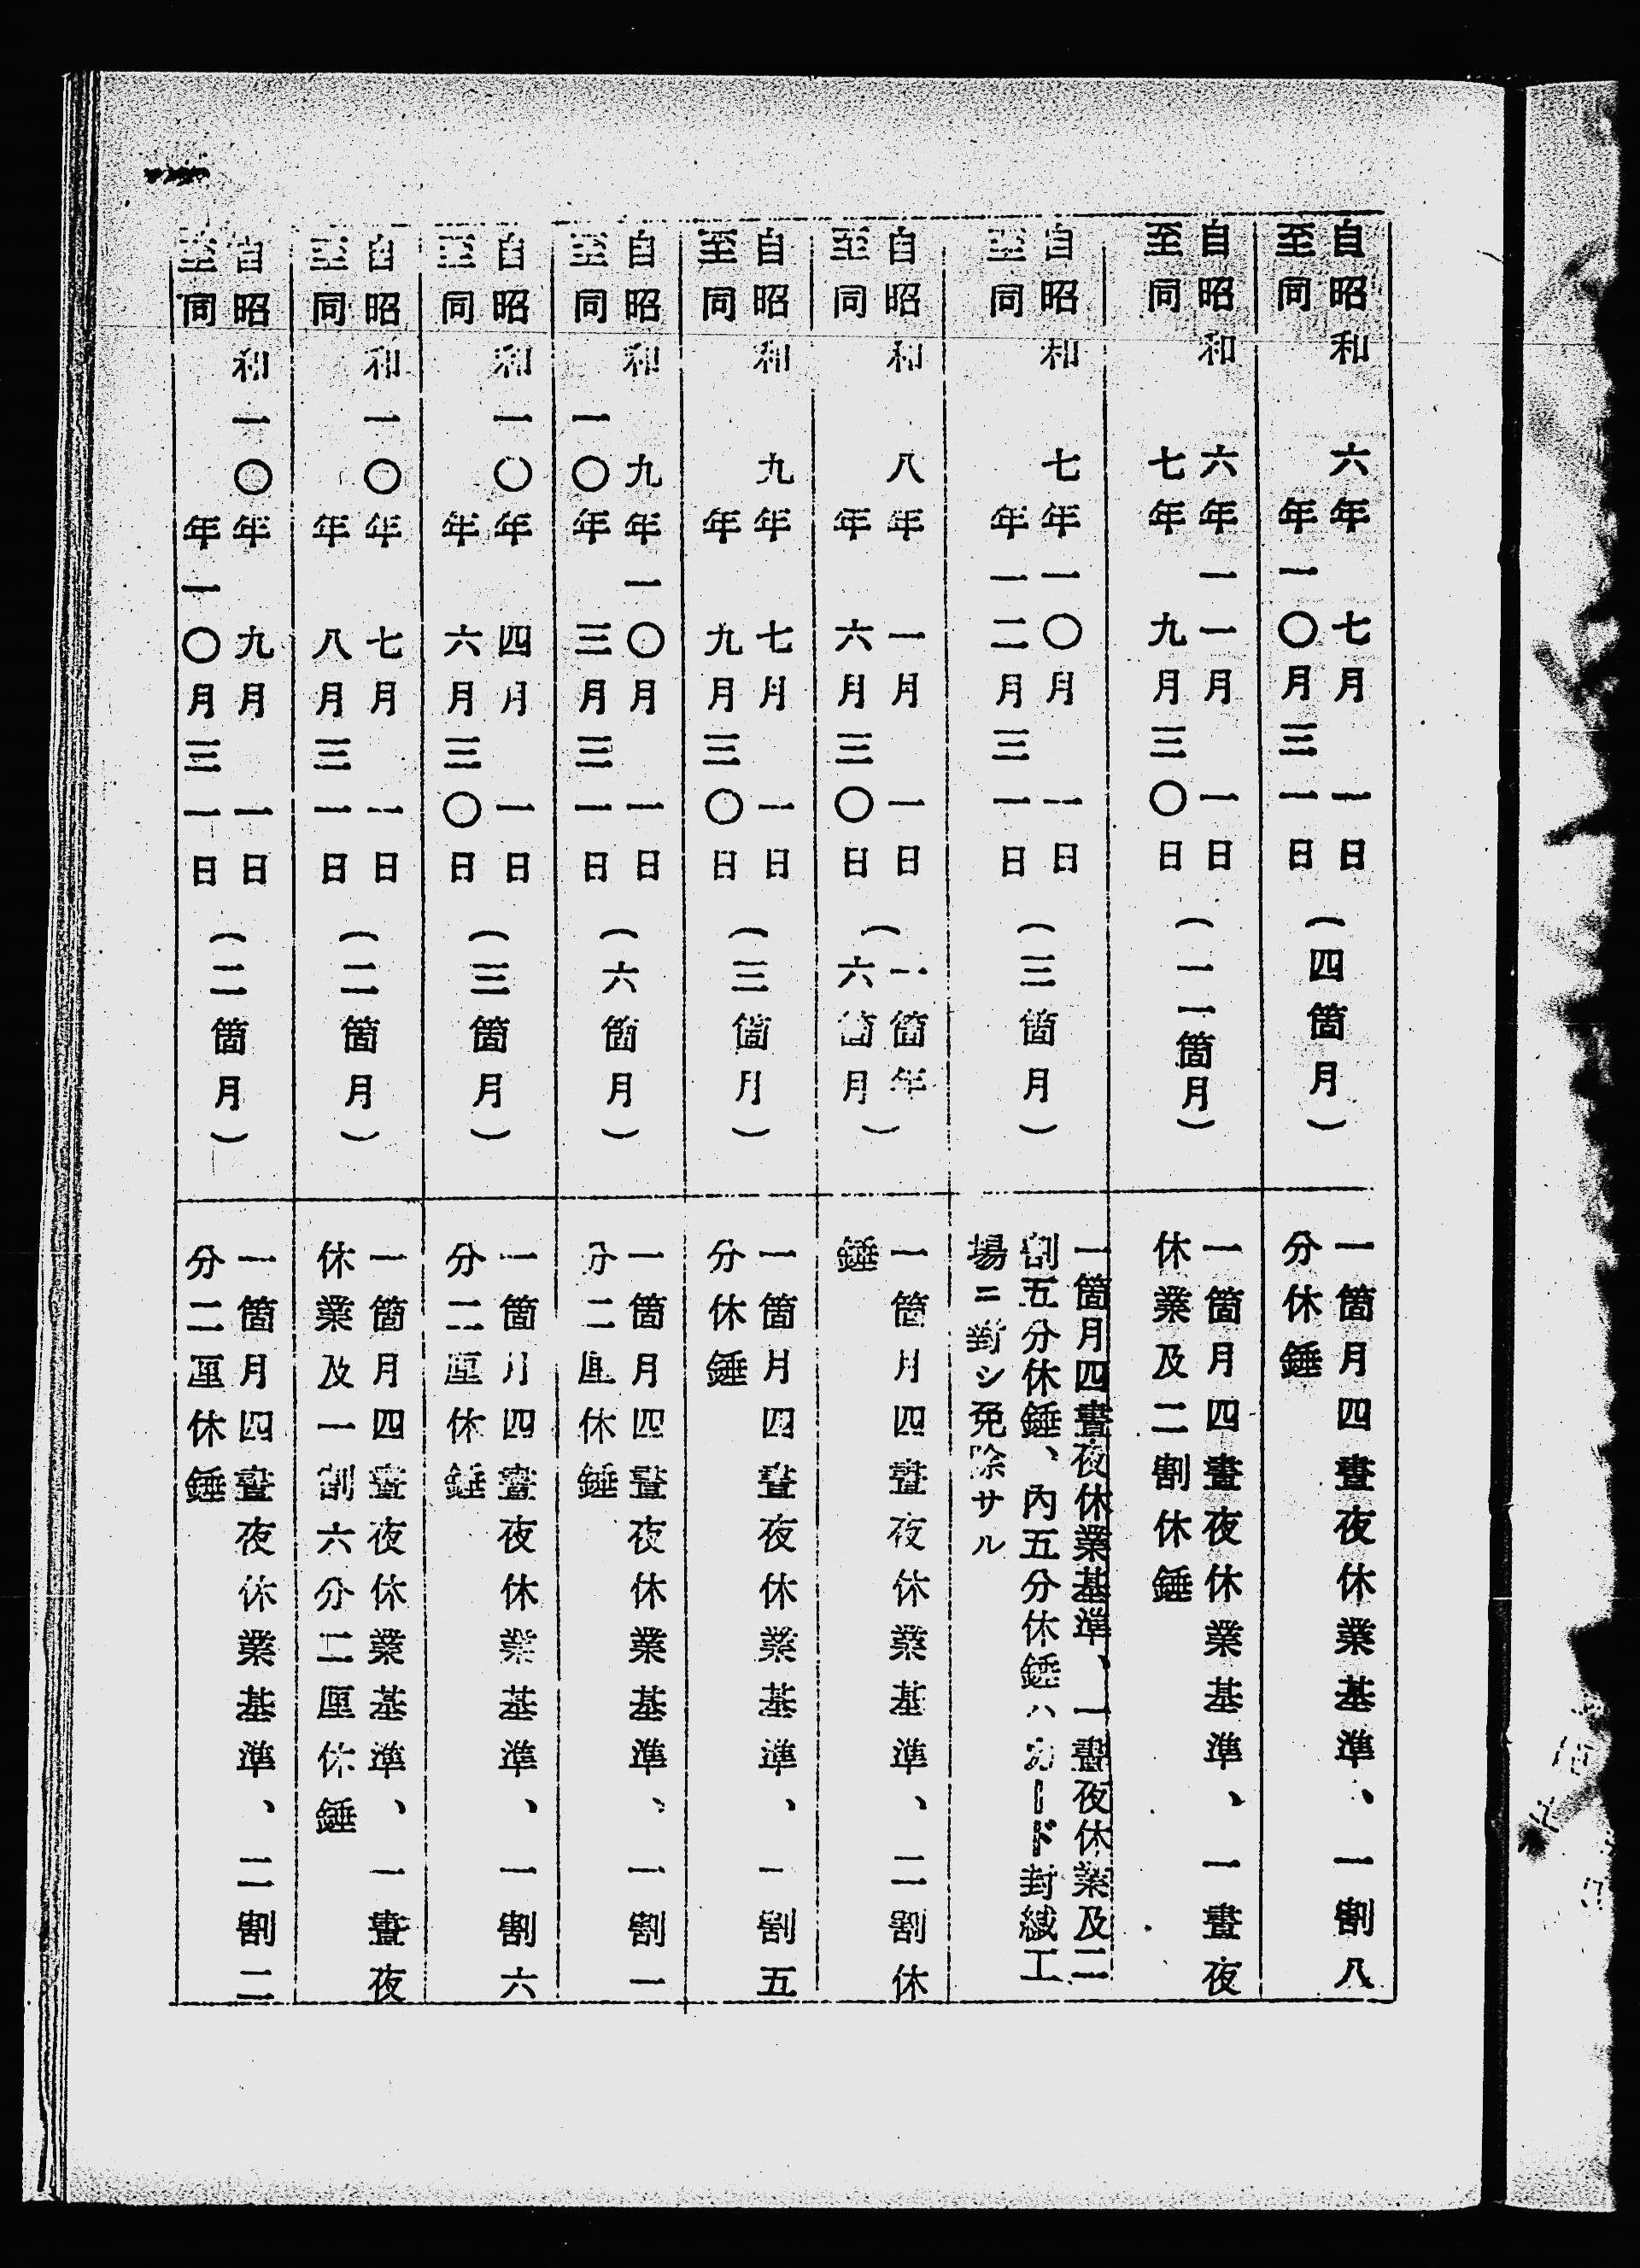 自昭和六年七月一日
至同年一〇月三一日
(四箇月)
一箇月四晝夜休業基準、一割八
分休錘
自昭和六年一一月一日
至同七年九月三〇日
(一一箇月)
一箇月四晝夜休業基準、一晝夜
休業及二割休錘
自昭和七年一〇月一日
至同年一二月三一日
(三箇月)
一箇月四晝夜休業基準、一晝夜休業及二
割五分休錘、內五分休錘ハカード封緘工
場ニ對シ免除サル
自昭和八年一月一日
至同年六月三〇日
(一箇年
六箇月)
一箇月四晝夜休業基準、二割休
錘
自昭和九年七月一日
至同年九月三〇日
(三箇月)
一箇月四晝夜休業基準、一割五
分休錘
自昭和九年一〇月一日
至同一〇年三月三一日
(六箇月)
一箇月四晝夜休業基準、一割一
分二厘休錘
自昭和一〇年四月一日
至同年六月三〇日
(三箇月)
一箇月四晝夜休業基準、一割六
分二厘休錘
自昭和一〇年七月一日
至同年八月三一日
(二箇月)
一箇月四晝夜休業基準、一晝夜
休業及一割六分二厘休錘
自昭和一〇年九月一日
至同年一〇月三一日
(二箇月)
一箇月四晝夜休業基準、二割二
分二厘休錘